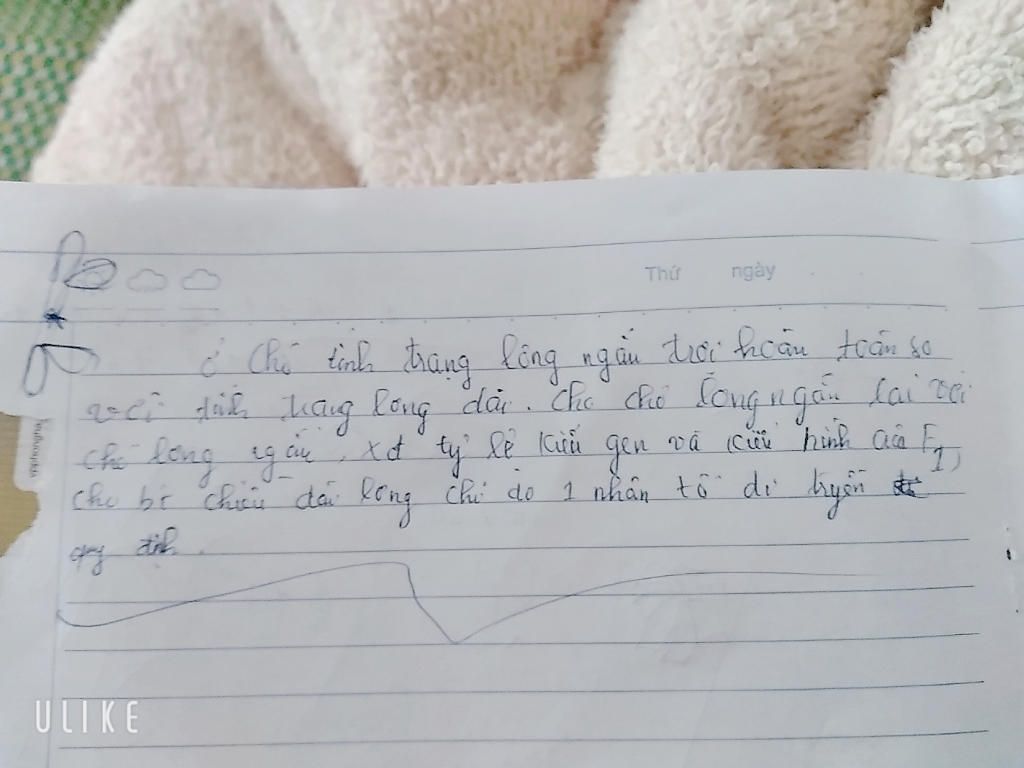 Thứ ngày
ở chó tính trạng lông ngắn trội hoàn toàn so
với tính trạng lông dài. Cho chó lông ngắn lai với
chó lông ngắn, xđ tỷ lệ kiểu gen và kiểu hình của F1,
cho bt chiều dài lông chỉ do 1 nhân tố di truyền
quy định.
ULIKE